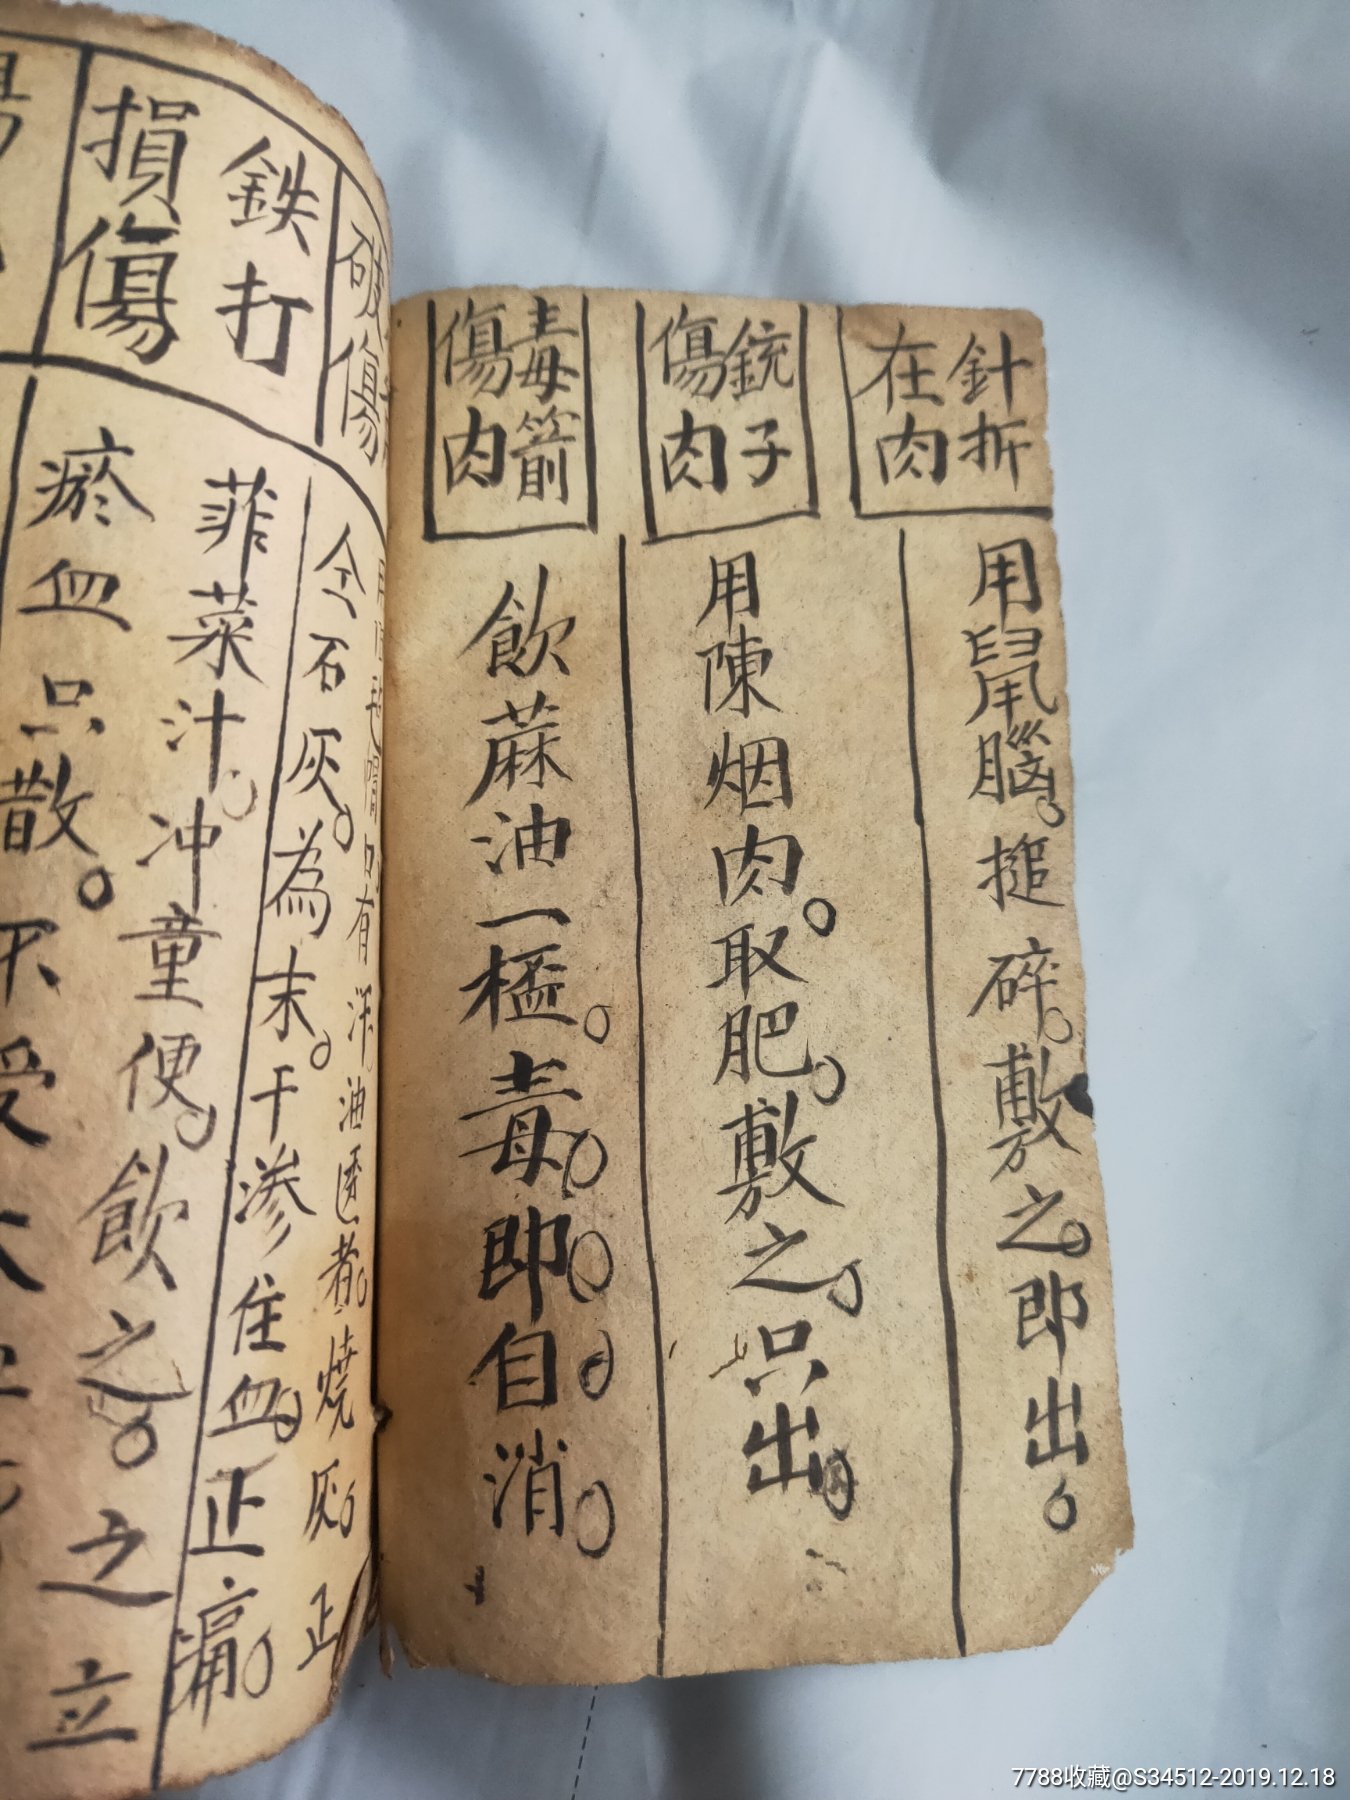 針折
在肉
用鼠腦。搥碎。敷之。即出。
銃子
傷肉
用陳烟肉。取肥。敷之。只出。
毒箭
傷肉
飲蔴油一榅。毒。即自消。
破傷
有洋油透者。燒灰。正
仝石灰。為末。干渗住血。正痛。
鉄打
損傷
菲菜汁。冲童便。飲之。之立
瘀血只散。不受
7788收藏@S34512-2019.12.18